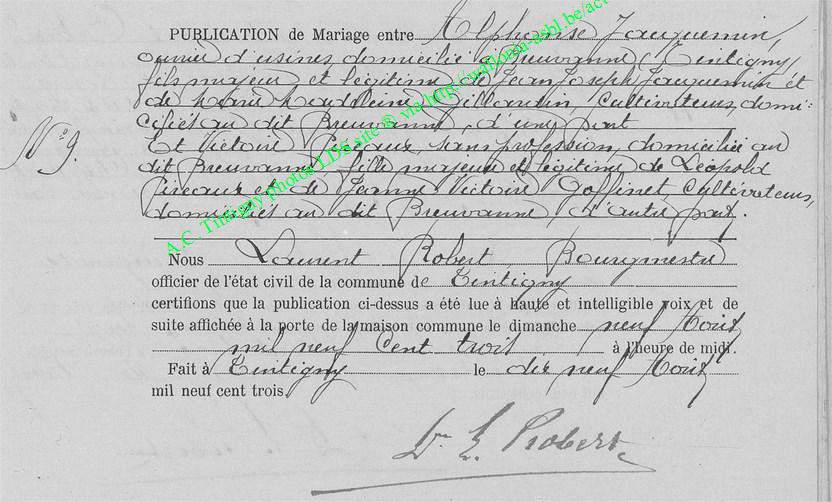 PUBLICATION de Mariage entre Alphonse Jacquemin,
ouvrier d'usines, domicilié à Breuvanne (Tintigny)
fils majeur et légitime de Jean Joseph Jacquemin et
de Marie Madeleine cultivateurs, domi-
ciliés au dit Breuvanne, d'une part
N° 9.
Et Victoire Piseaux, sans profession, domiciliée au
dit Breuvanne fille majeure et légitime de Léopold
Piseaux et de Jeanne Victoire Goffinet, cultivateurs,
domiciliés au dit Breuvanne d'autre part.
Nous Laurent Robert, Bourgmestre
officier de l'état civil de la commune de Tintigny
certifions que la publication ci-dessus a été lue à haute et intelligible voix et de
suite affichée à la porte de la maison commune le dimanche neuf Août
mil neuf cent trois à l'heure de midi.
Fait à Tintigny le dix neuf Août
mil neuf cent trois.
Dr L. Robert
A.C. Tintigny photos LDS site © via http://wallonia-asbl.be/ac